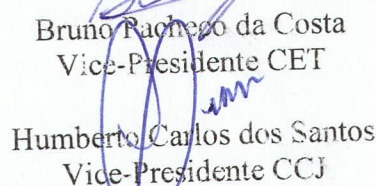 Bruno Pacheco da Costa
Vice-Presidente CET
Humberto Carlos dos Santos
Vice-Presidente CCJ